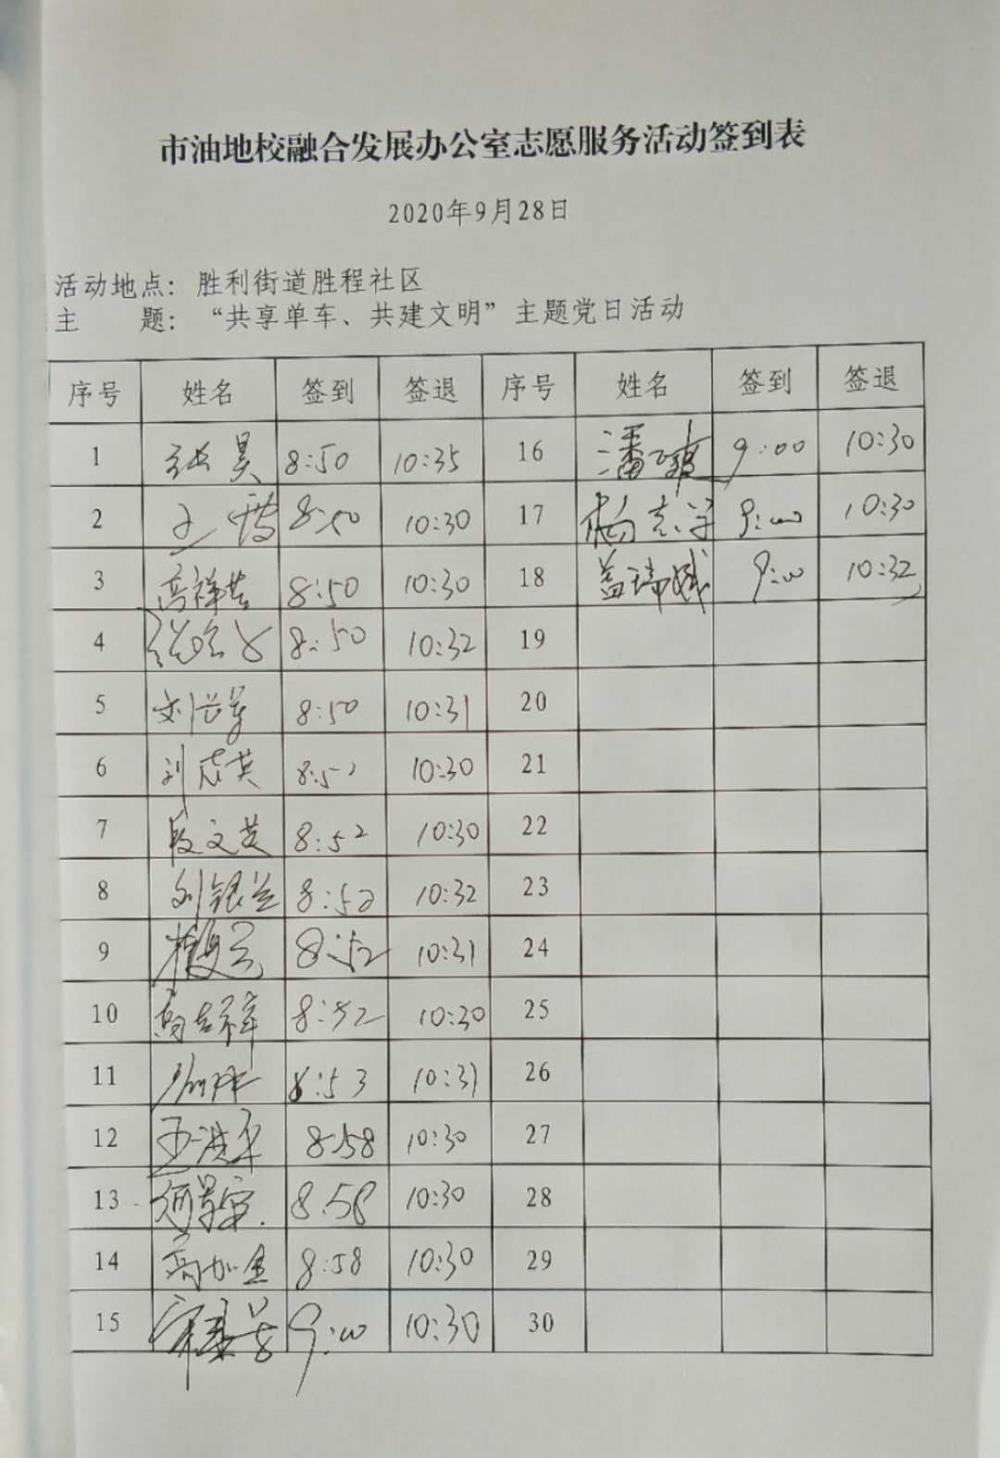 市油地校融合发展办公室志愿服务活动签到表
2020年9月28日
活动地点：胜利街道胜程社区
主 题：“共享单车、共建文明”主题党日活动
序号 姓名 签到 签退 序号 姓名 签到 签退
1 张昊 8:50 10:35 16 潘 9:00 10:30
2 王 8:50 10:30 17 杨志学 9:00 10:30
3 高祥 8:50 10:30 18 盖瑞斌 9:00 10:32
4 8:50 10:32 19
5 刘 8:50 10:31 20
6 刘成英 10:30 21
7 段文英 8:52 10:30 22
8 刘银兰 8:52 10:32 23
9 8:52 10:31 24
10 高吉祥 8:52 10:30 25
11 8:53 10:31 26
12 王洪军 8:58 10:30 27
13 何 8:58 10:30 28
14 高加金 8:58 10:30 29
15 9:00 10:30 30